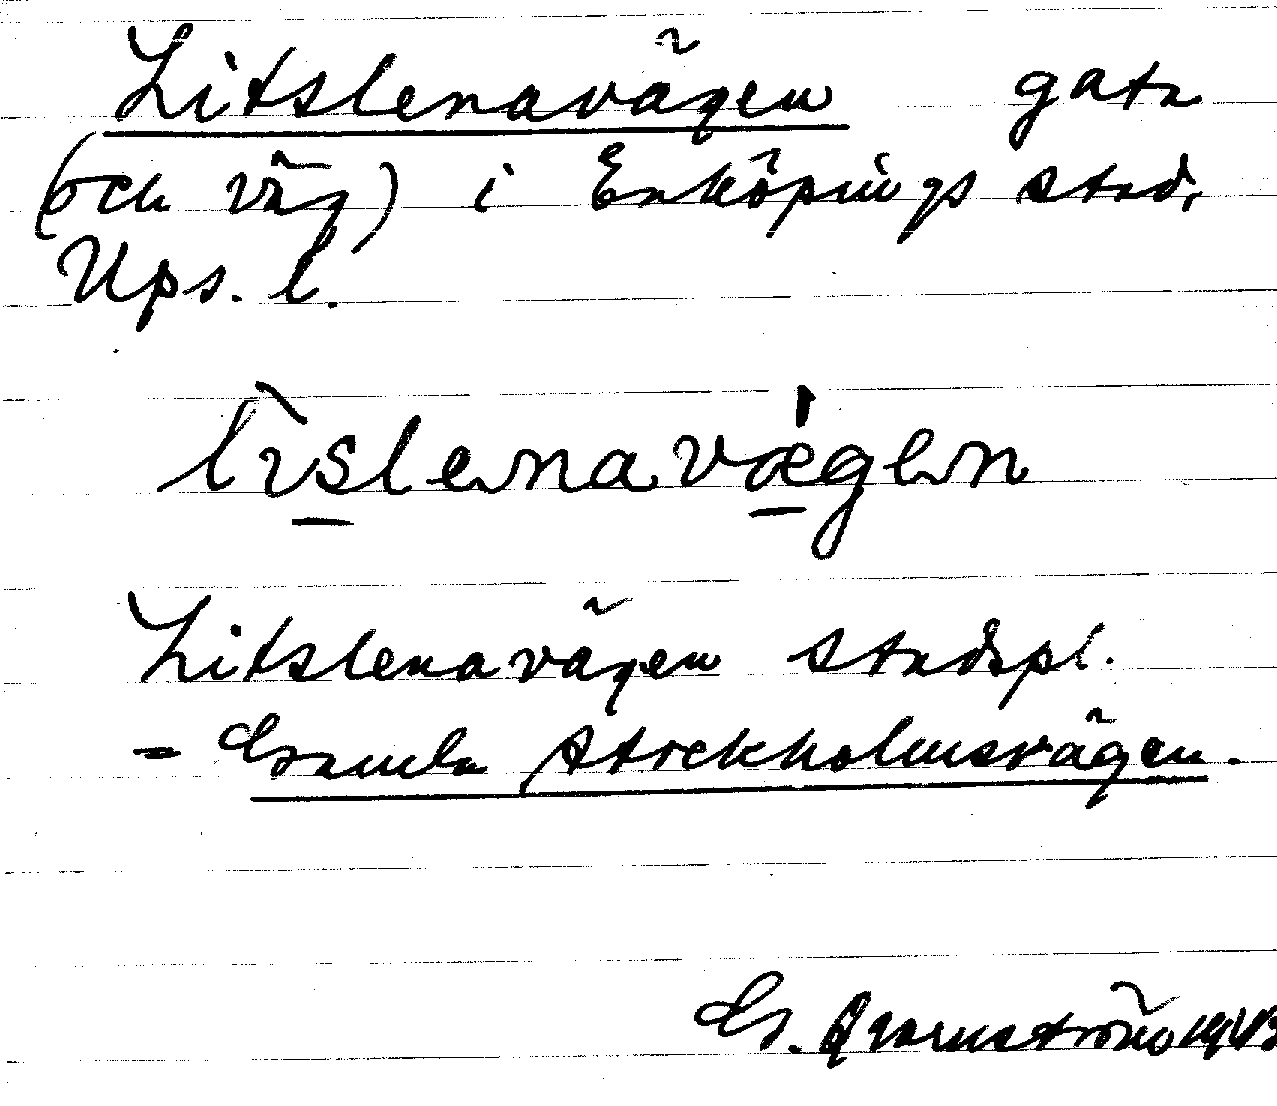 Litslenavägen gata
(och väg) i Enköpings stad,
Ups. l.
lìslenavǽgen
Litslenavägen stadspl.
= Gamla Stockholmsvägen.
G. Qvarnström